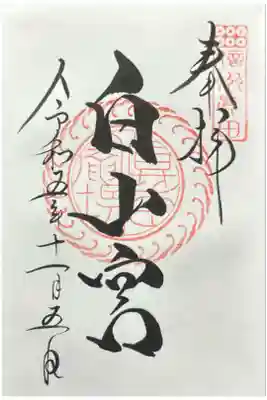 奉拝
白山宮
令和五年十一月五日